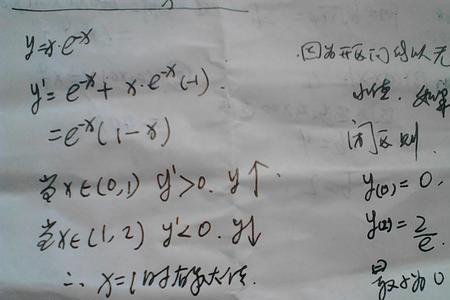 y=x·e^-x
y'=e^-x+x·e^-x(-1).
=e^-x(1-x)
当x∈(0,1) y'>0. y↑.
当x∈(1,2) y'<0. y↓
∴ x=1时有最大值.
因为开区间所以无
小值. 如果
闭区则.
y(0)=0,
y(2)=2/e.
最小为0